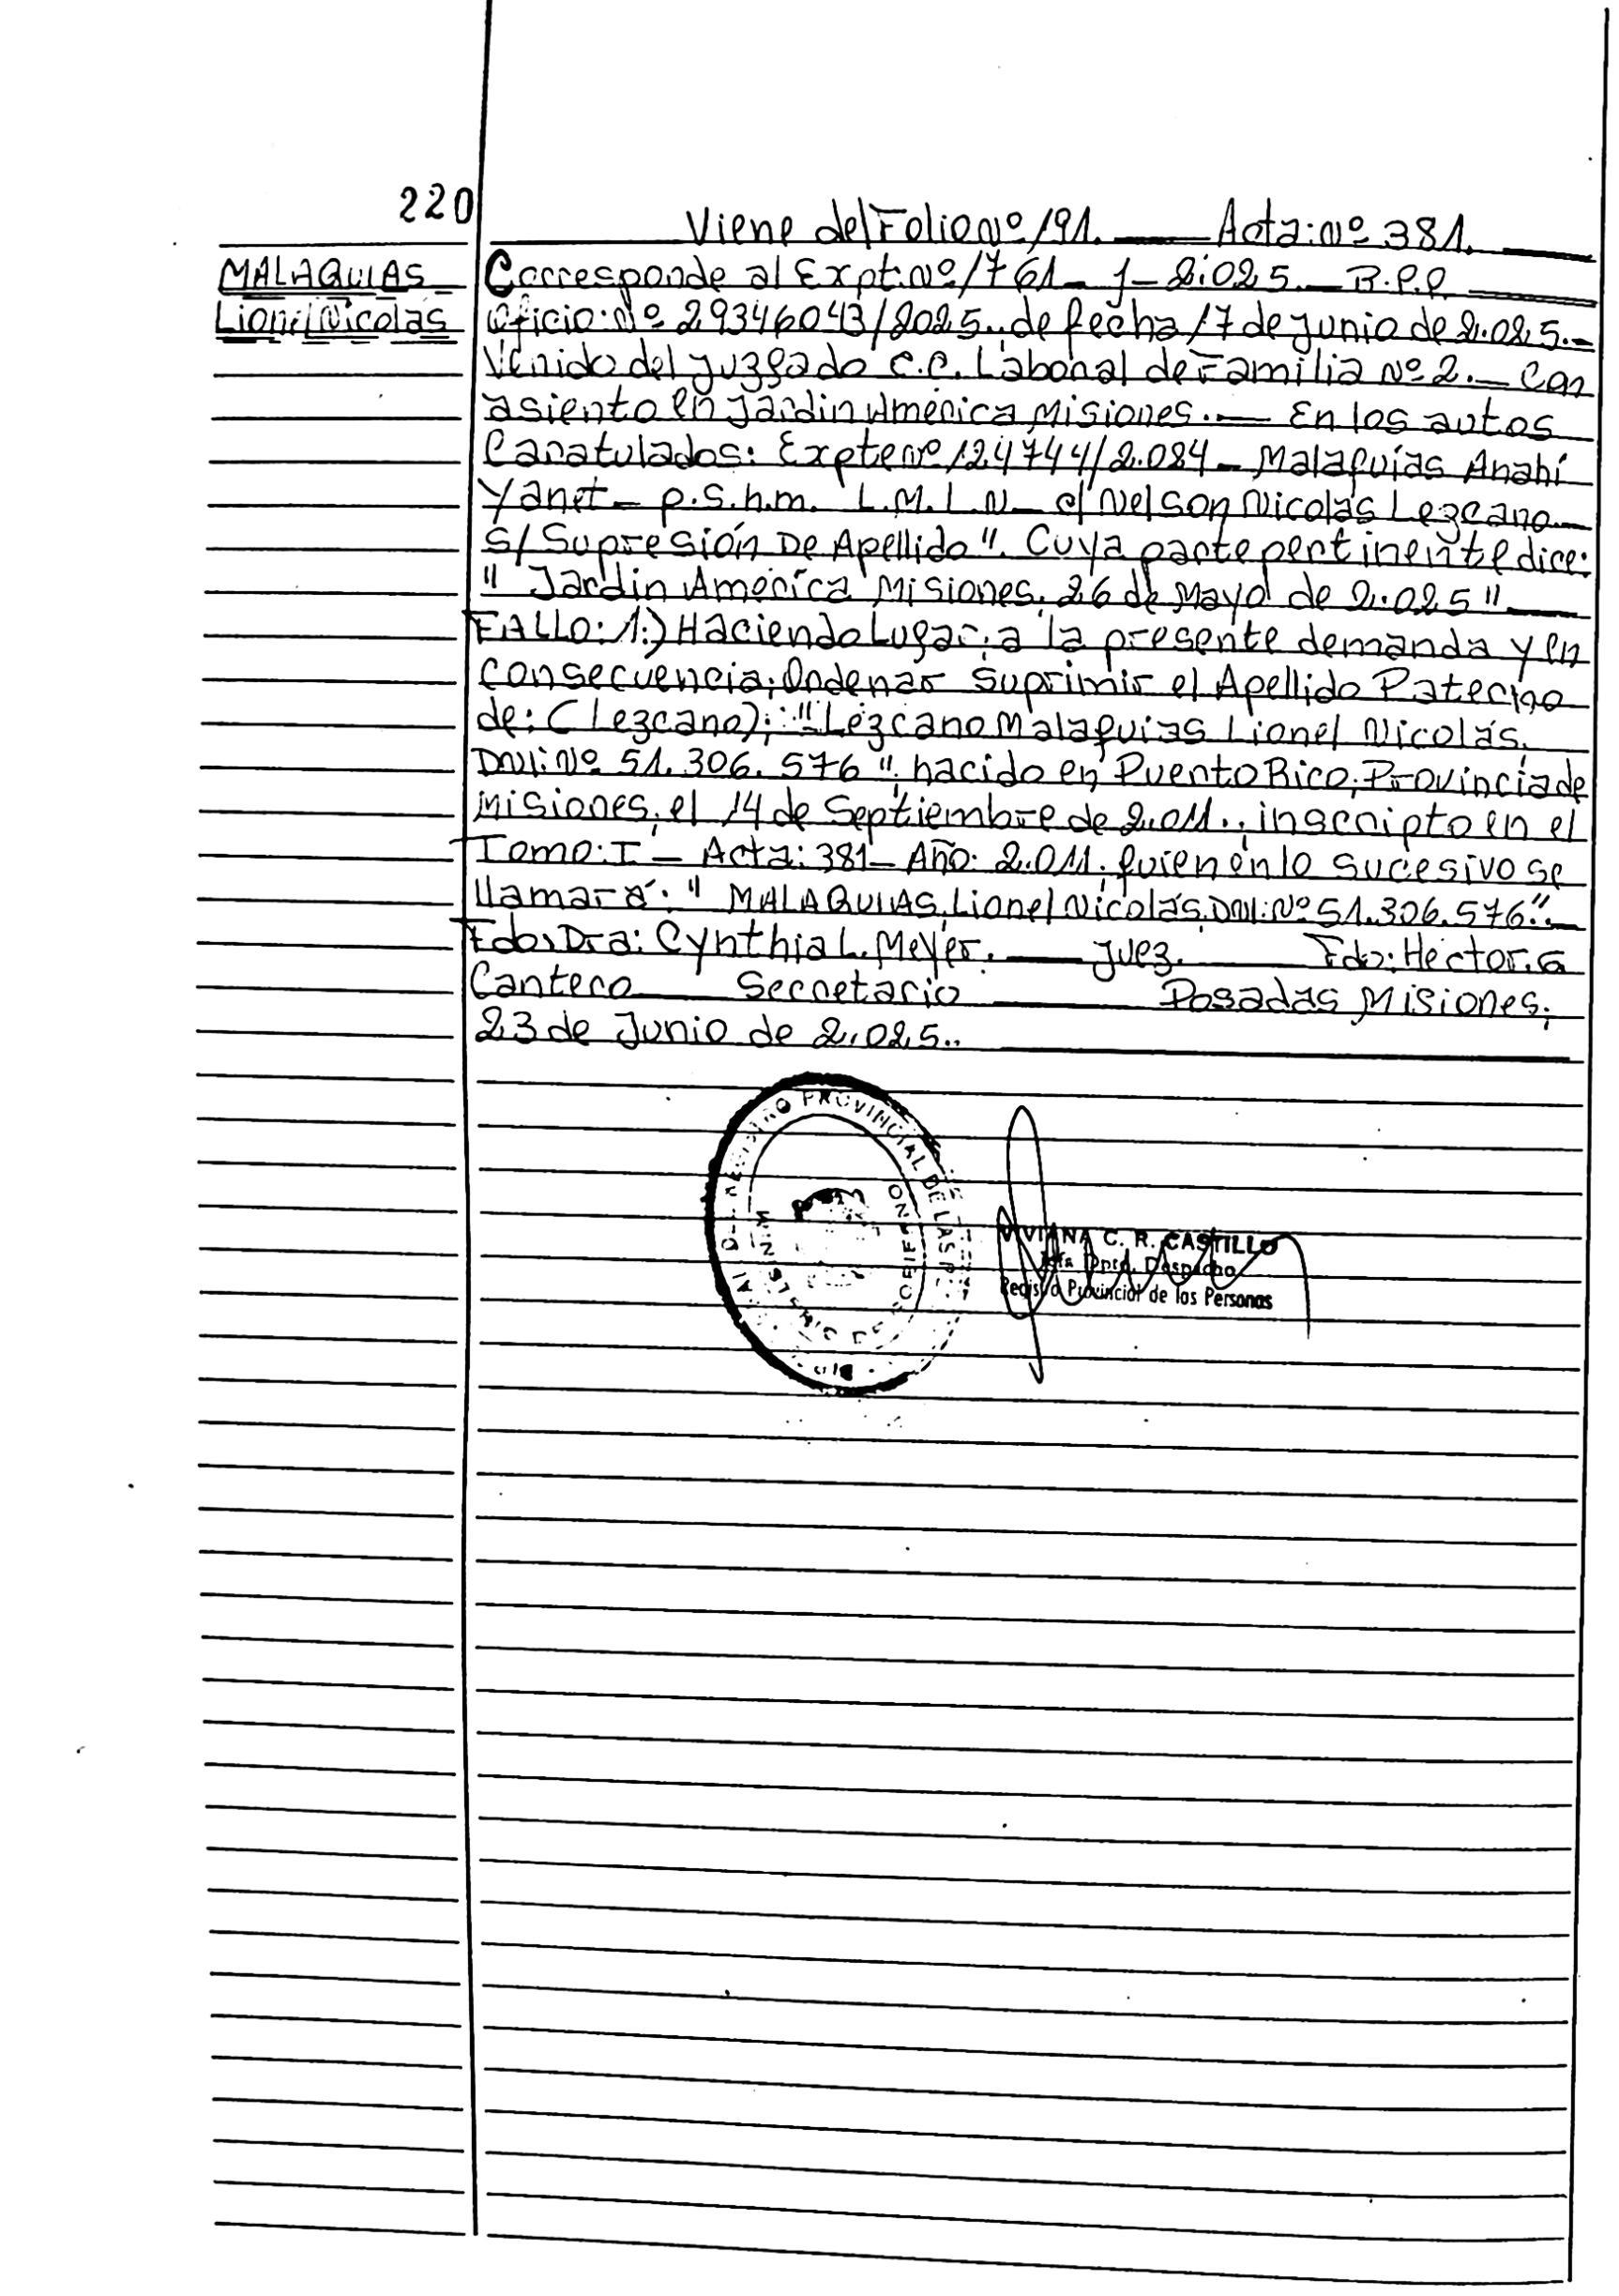 220
Viene del Folio Nº 191. Acta: Nº 381.
MALAQUIAS
Lionel Nicolás
Corresponde al Expt. Nº 1761 - J - 2.025. R.P.P.
Oficio: Nº 29346043/2025., de fecha 17 de Junio de 2.025.-
Venido del Juzgado C.C. Laboral de Familia Nº 2. Con
asiento en Jardín América Misiones. En los autos
Caratulados: Expte Nº 124744/2.024 - Malaquías Anahí
Yanet - p.s.h.m. L.M.L.N. c/ Nelson Nicolás Lezcano
S/ Supresión De Apellido". Cuya parte pertinente dice:
" Jardín América Misiones, 26 de Mayo de 2.025"
FALLO: 1:) Haciendo Lugar, a la presente demanda y en
Consecuencia; Ordenar Suprimir el Apellido Paterno
de: (Lezcano); "Lezcano Malaquias Lionel Nicolás,
DNI: Nº 51.306.576", nacido en Puerto Rico, Provincia de
Misiones, el 14 de Septiembre de 2.011., inscripto en el
Tomo: I - Acta: 381 - Año: 2.011. quien en lo sucesivo se
llamará: " MALAQUIAS, Lionel Nicolás, DNI: Nº 51.306.576".
Fdo: Dra: Cynthia L. Meyer. Juez. Fdo: Hector. G
Cantero Secretario Posadas Misiones,
23 de Junio de 2.025..
REGISTRO PROVINCIAL DE LAS
MINISTERIO DE GOBIERNO
VIVIANA C. R. CASTILLO
Jefa Dpto. Despacho
Registro Provincial de las Personas